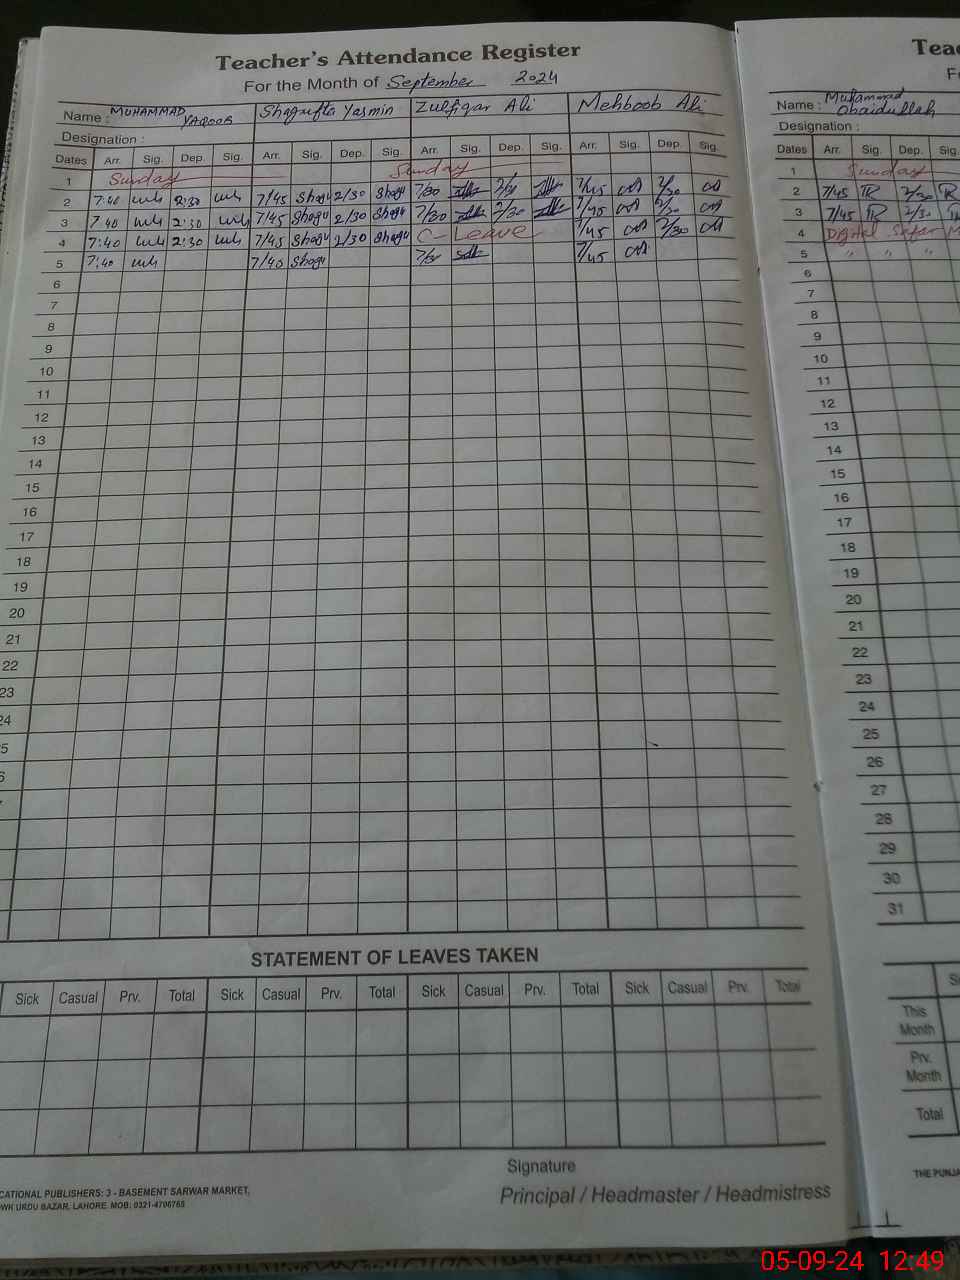 Teacher's Attendance Register
For the Month of September 2024
Name : MUHAMMAD YAQOOB Shagufta Yasmin Zulfiqar Ali Mehboob Ali
Designation :
Dates Arr. Sig. Dep. Sig. Arr. Sig. Dep. Sig. Arr. Sig. Dep. Sig. Arr. Sig. Dep. Sig.
1 Sunday Sunday
2 7:40 2:30 7/45 Shagu 2/30 Shagu 7/30 2/30 7/45 2/30
3 7:40 2:30 7/45 Shagu 2/30 Shagu 7/30 2/30 7/45 2/30
4 7:40 2:30 7/45 Shagu 2/30 Shagu C-Leave 7/45 2/30
5 7:40 7/40 Shagu 7/45
6
7
8
9
10
11
12
13
14
15
16
17
18
19
20
21
22
23
24
5
6
STATEMENT OF LEAVES TAKEN
Sick Casual Prv. Total Sick Casual Prv. Total Sick Casual Prv. Total Sick Casual Prv. Total
Signature
Principal / Headmaster / Headmistress
CATIONAL PUBLISHERS: 3 - BASEMENT SARWAR MARKET,
OWK URDU BAZAR, LAHORE. MOB: 0321-4706765
Teac
F
Name : Muhammad Obaidullah
Designation :
Dates Arr. Sig. Dep. Sig.
1 Sunday
2 7/45 TR 2/30 TR
3 7/45 TR 2/30
4 Digital Safar M
5 " " "
6
7
8
9
10
11
12
13
14
15
16
17
18
19
20
21
22
23
24
25
26
27
28
29
30
31
This Month
Prv. Month
Total
THE PUNJA
05-09-24 12:49